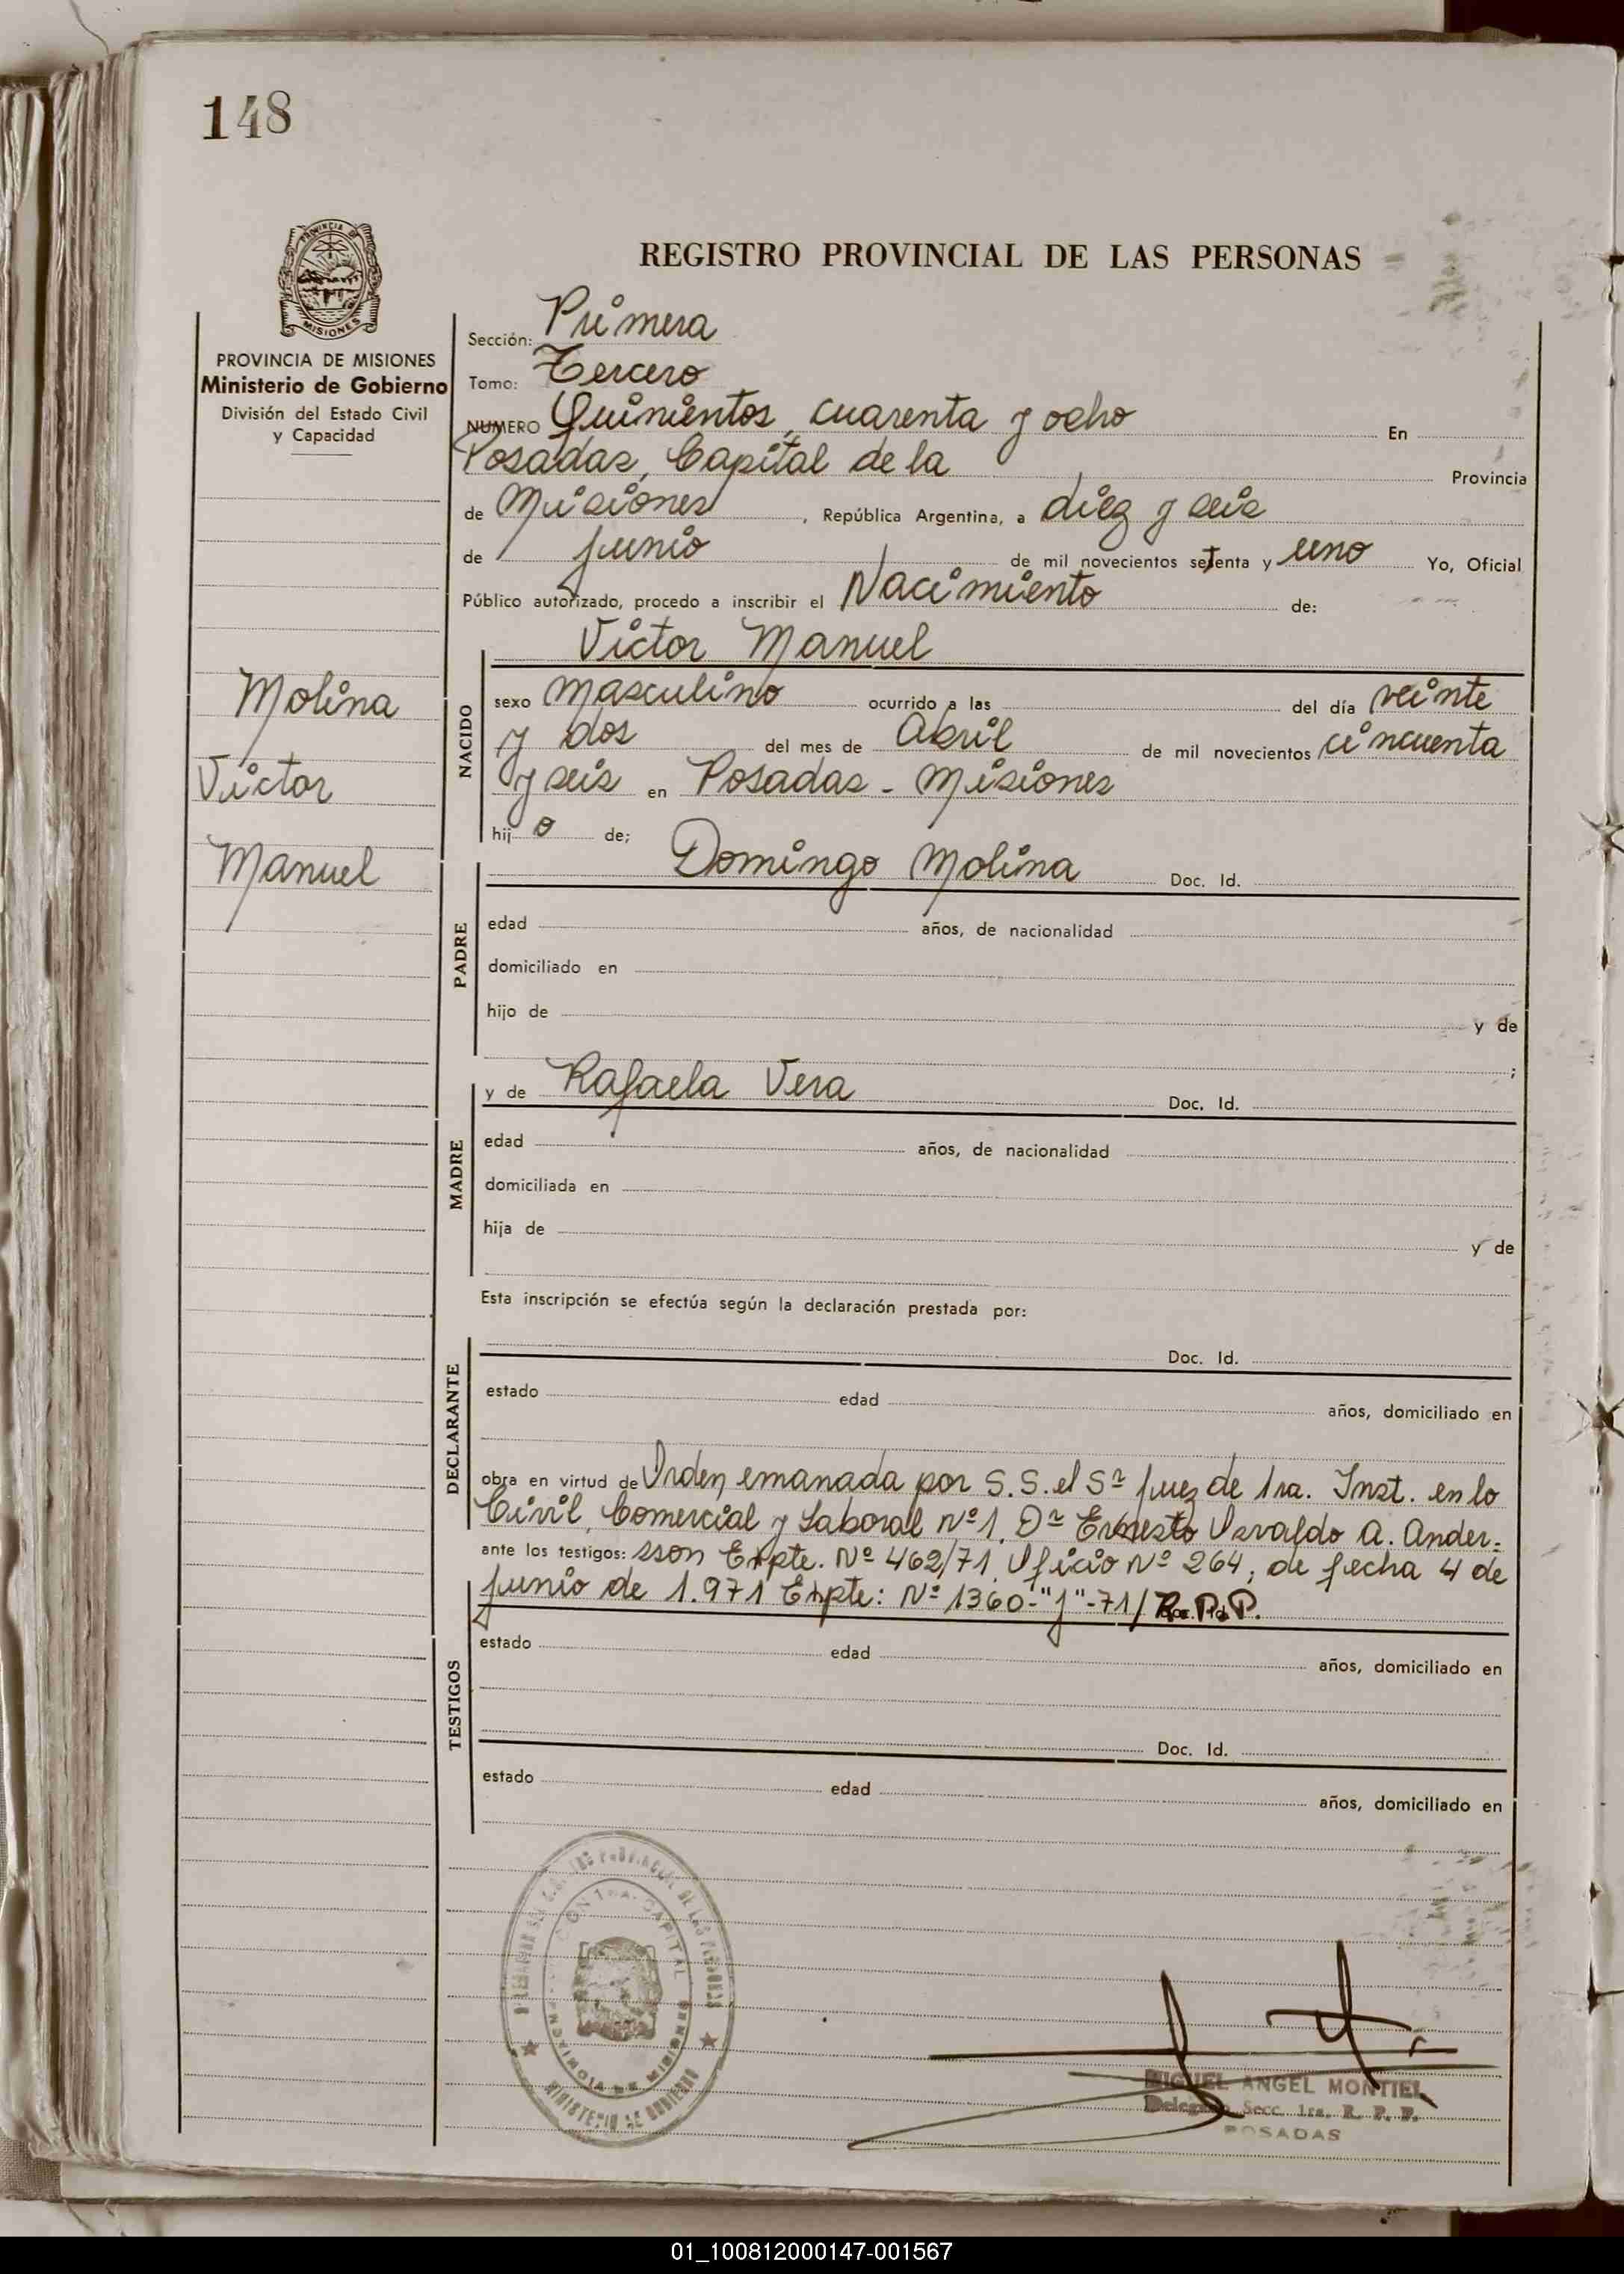 148
PROVINCIA DE
MISIONES
REGISTRO PROVINCIAL DE LAS PERSONAS
PROVINCIA DE MISIONES
Ministerio de Gobierno
División del Estado Civil
y Capacidad
Molina
Victor
Manuel
Sección: Primera
Tomo: Tercero
NUMERO Quinientos, cuarenta y ocho En
Posadas, Capital de la Provincia
de Misiones, República Argentina, a diez y seis
de junio de mil novecientos setenta y uno Yo, Oficial
Público autorizado, procedo a inscribir el Nacimiento de:
Victor Manuel
NACIDO
sexo masculino ocurrido a las del día veinte
y dos del mes de Abril de mil novecientos cincuenta
y seis en Posadas - Misiones
hij o de;
Domingo Molina Doc. Id.
PADRE
edad años, de nacionalidad
domiciliado en
hijo de y de
;
y de Rafaela Vera Doc. Id.
MADRE
edad años, de nacionalidad
domiciliada en
hija de y de
Esta inscripción se efectúa según la declaración prestada por:
DECLARANTE
Doc. Id.
estado edad años, domiciliado en
obra en virtud de Orden emanada por S.S. el Sr Juez de 1ra. Inst. en lo
Civil, Comercial y Laboral Nº 1, Dr Ernesto Osvaldo A. Ander-
ante los testigos: sson Expte. Nº 462/71, Oficio Nº 264, de fecha 4 de
junio de 1.971 Expte: Nº 1360-"J"-71/ R.P.P.
TESTIGOS
estado edad años, domiciliado en
Doc. Id.
estado edad años, domiciliado en
CAPITAL
PROVINCIA DE MISIONES
MINISTERIO DE GOBIERNO
MIGUEL ANGEL MONTIEL
Delegado Secc. 1ra. R. P. P.
POSADAS
01_100812000147-001567